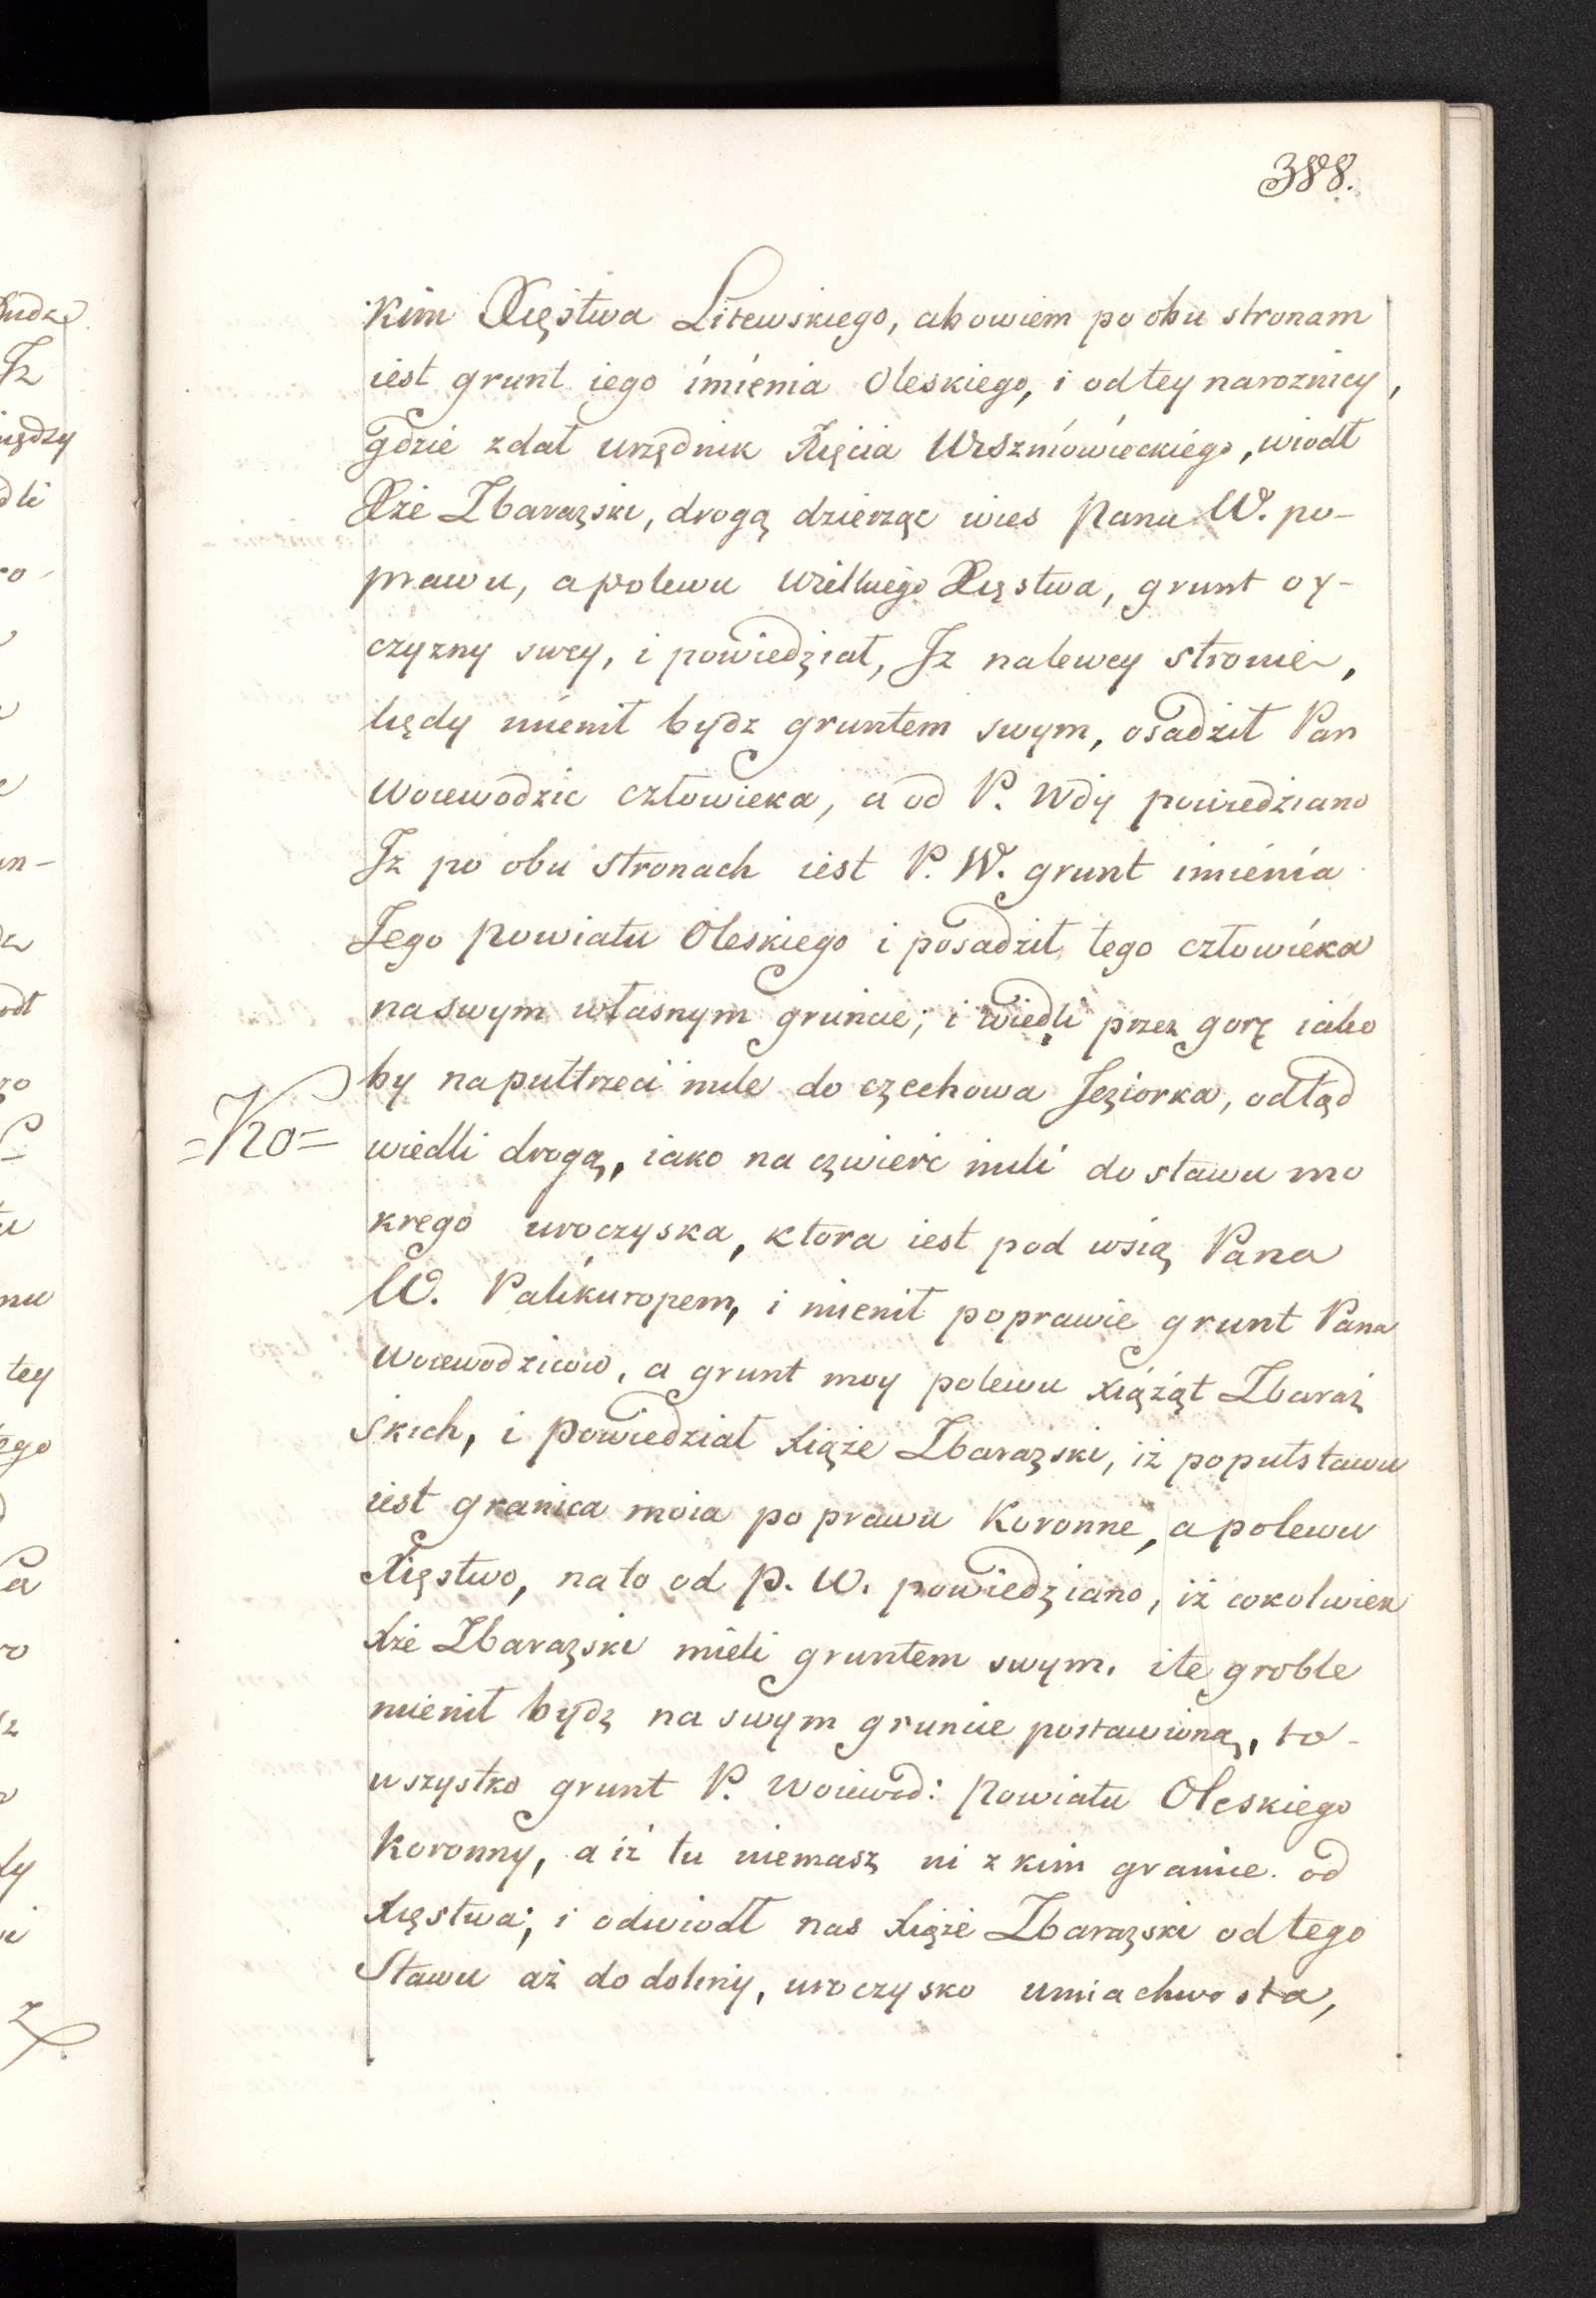 388.
kim Xięstwa Litewskiego, abowiem po obu stronam
iest grunt iego imienia Oleskiego, i odtey naroznicy,
gdzie zdał urzędnik Xięcia Wiszniowieckiego, wiodł
Xże Zbarazski, drogą dzierząc wies Pana W. po-
prawu, apolewu Wielkiego Xięstwa, grunt oy-
czyzny swey, i powiedział, Iz nalewey stronie,
kędy mienił bydz gruntem swym, osadził Pan
Woiewodzic człowieka, a od P. Wdy powiedziano
Iz po obu stronach iest P. W. grunt imienia
Jego powiatu Oleskiego i posadził tego człowieka
naswym własnym gruncie; i wiedli przez gorę iako
by napułtrzeci mile do czechowa Jeziorka, odtąd
=Ko=
wiedli drogą, iako na czwierc mili do stawu mo
krego uroczyska, ktora iest pod wsią Pana
W. Palikuropem, i mienił poprawie grunt Pana
Woiewodzicow, a grunt moy polewu Xiążąt Zbaraz
skich, i powiedział Xiąże Zbarazski, iż popułstawu
iest granica moia po prawu Koronne, a polewu
Xięstwo, nato od P. W. powiedziano, iż cokolwiek
Xże Zbarazski mieli gruntem swym. ite groble
mienił bydz na swym gruncie postawioną, to-
wszystko grunt P. Woiewod: Powiatu Oleskiego
Koronny, a iż tu niemasz ni z kim granice. od
Xięstwa; i odwiodł nas Xiąże Zbarazski odtego
Stawu aż do doliny, uroczysko umiachwosta,